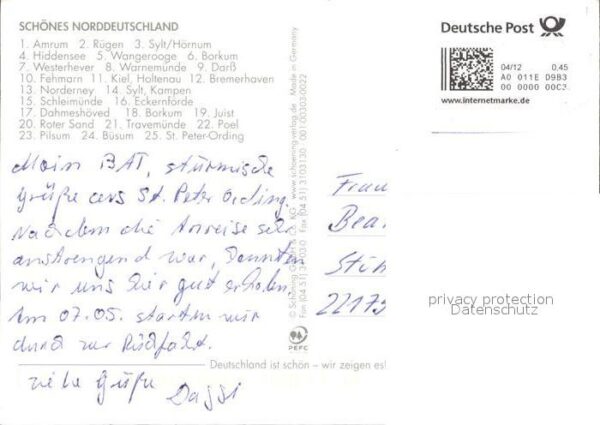 SCHÖNES NORDDEUTSCHLAND
1. Amrum 2. Rügen 3. Sylt/Hörnum
4. Hiddensee 5. Wangerooge 6. Borkum
7. Westerhever 8. Warnemünde 9. Darß
10. Fehmarn 11. Kiel, Holtenau 12. Bremerhaven
13. Norderney 14. Sylt, Kampen
15. Schleimünde 16. Eckernförde
17. Dahmeshöved 18. Borkum 19. Juist
20. Roter Sand 21. Travemünde 22. Poel
23. Pilsum 24. Büsum 25. St. Peter-Ording
Moin BAT, stürmische
Grüße aus St. Peter Ording.
Nachdem die Anreise sehr
anstrengend war, konnten
wir uns hier gut erholen.
Am 07.05. starten wir
dann zur Rückfahrt.
viele Grüße
Daggi
© Schöning GmbH & Co. KG • www.schoening-verlag.de Made in Germany
Fon (04 51) 3 10 03-0 Fax (04 51) 3103130 001\00303-0022
PEFC
Deutschland ist schön – wir zeigen es!
Deutsche Post
04/12 0,45
A0 011E D9B3
00 0000 00C3
www.internetmarke.de
Frau
Bea
22175
privacy protection
Datenschutz